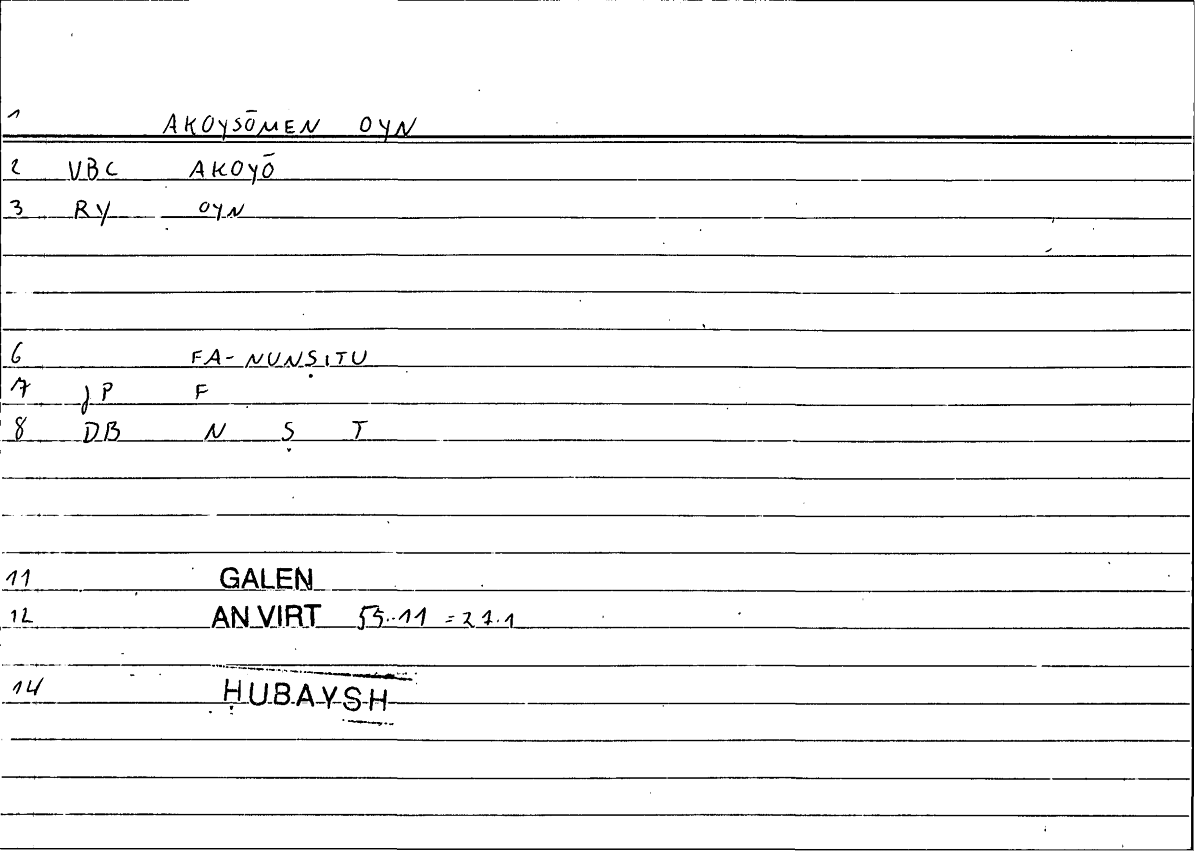 1 AKOYSŌMEN OYN
2 VBC AKOYŌ
3 RY OYN
6 FA-NUNṢITU
7 JP F
8 DB N Ṣ T
11 GALEN
12 AN VIRT 55.11 = 27.1
14 ḤUBAYSH